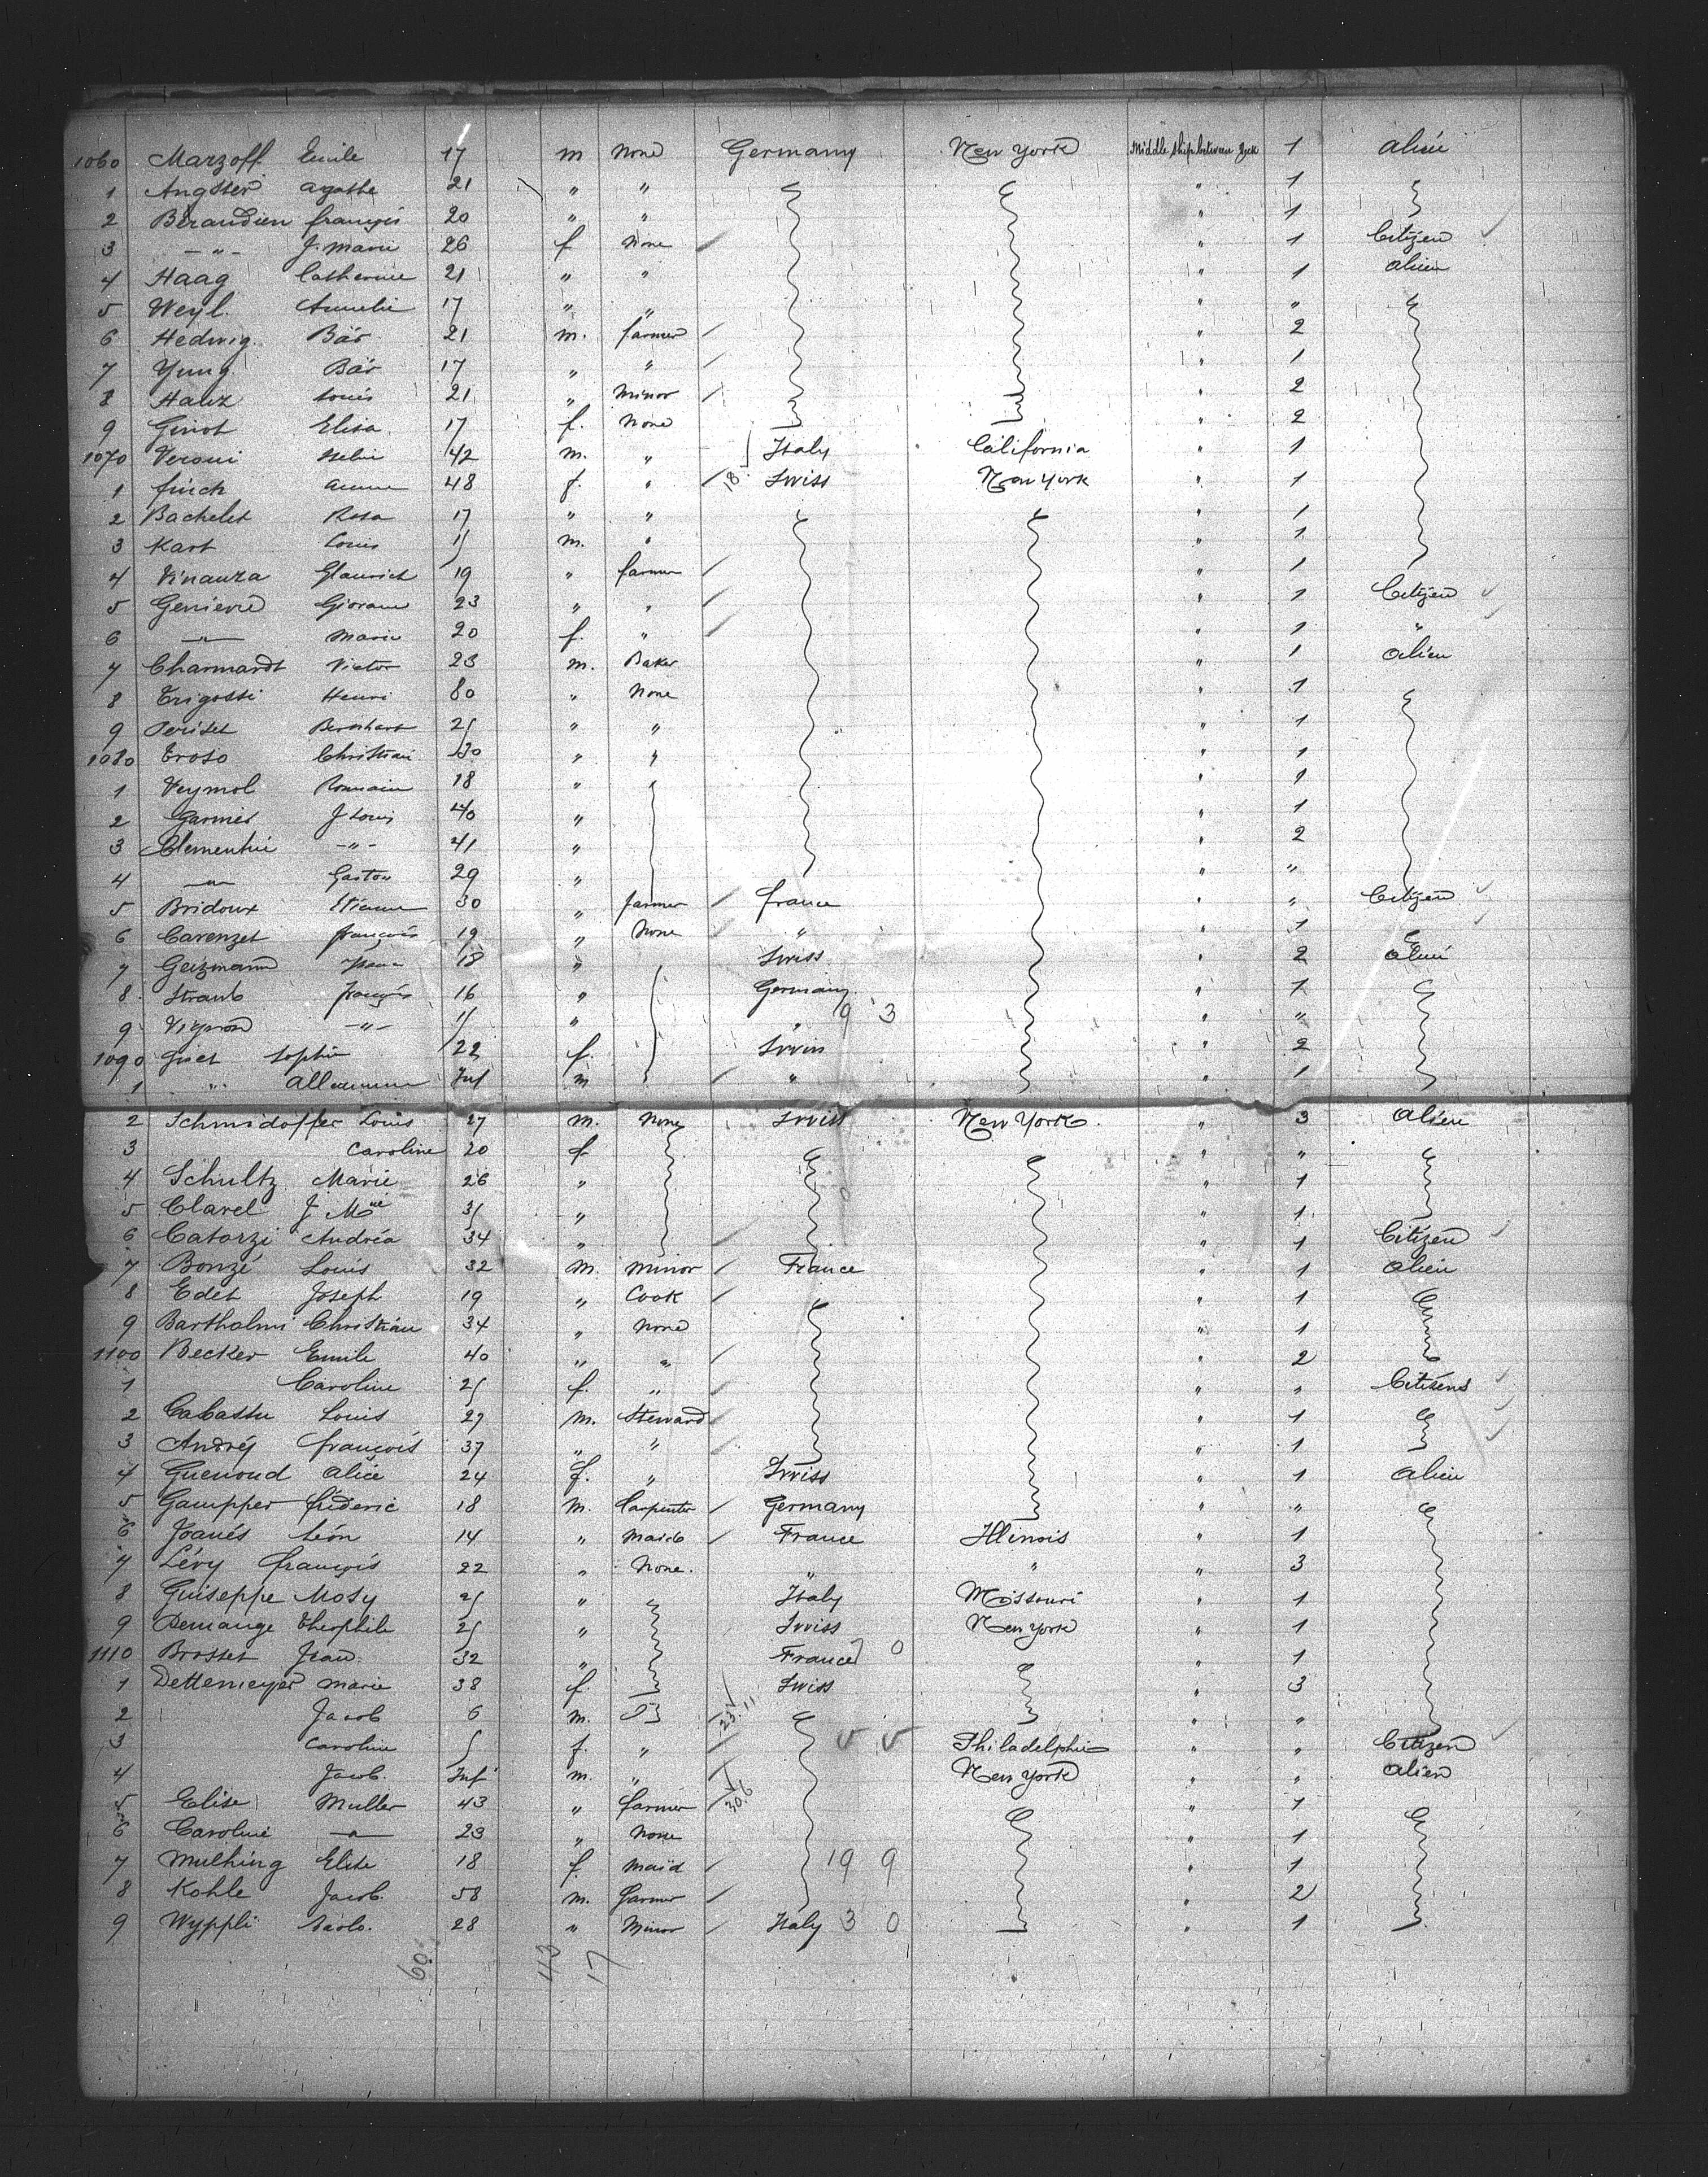 1060 Marzoff Emile 17 m None Germany New York Middle Ship between Deck 1 alien
1 Angster agathe 21 " " " 1
2 Beraudien françois 20 " " " 1
3 - " - J. Marie 26 f None " 1 Citizen
4 Haag Catherine 21 " " " 1 alien
5 Weyl. Amelie 17 " " " "
6 Hedwig. Bär 21 m. farmer " 2
7 Yung Bär 17 " " " 1
8 Hauz Louis 21 " Minor " 2
9 Genot Elisa 17 f. None " 2
1070 Veroni 42 m. " Italy California " 1
1 finck anna 48 f. " 18 Swiss New York " 1
2 Bachelet Rosa 17 " " " 1
3 Kart Louis 15 m. " " 1
4 Vinauza 19 " farmer " 1
5 Genievre Giovani 23 " " " 1 Citizen
6 " Marie 20 f. " " 1 "
7 Charmardt Victor 23 m. Baker " 1 alien
8 Trigossi Henri 80 " None " 1
9 Periset Bernhart 25 " " " 1
1080 Troso Christian 30 " " " 1
1 Veymol Romain 18 " " " 1
2 Garmes J Louis 40 " " 1
3 Clementin - " - 41 " " 2
4 " Gaston 29 " " "
5 Bridoux Etienne 30 " farmer france " " Citizen
6 Carenzet françois 19 " None " " 1
7 Geizmann 18 " Swiss " 2 alien
8 Straub françois 16 " Germany " 1
9 Vignon - " - 15 " " 9 3 " "
1090 Guet Sophie 22 f. Swiss " 2
1 " Inf m " " " 1
2 Schmidoffer Louis 27 m. None Swiss New York. " 3 Alien
3 Caroline 20 f " "
4 Schultz Marie 26 " " 1
5 Clavel J. Mie 35 " " 1
6 Catarzi Andréa 34 " " 1 Citizen
7 Bonzé Louis 32 m. Minor France " 1 alien
8 Edet Joseph 19 " Cook " 1
9 Bartholmi Christian 34 " None " 1
1100 Becker Emile 40 " " " 2
1 Caroline 25 f. " " " Citizens
2 Cabastu Louis 27 m. Steward " 1
3 André françois 37 " " " 1
4 Guenoud Alice 24 f. " Swiss " 1 Alien
5 Gampper fréderic 18 m. Carpenter Germany " "
6 Joanés Léon 14 " Maid France Illinois " 1
7 Lévy françois 22 " None. " " " 3
8 Guiseppe Mosy 25 " Italy Missouri " 1
9 Demange Theophile 25 " Swiss New York " 1
1110 Brosset Jean 32 " France 0 " 1
1 Dettemeyer Marie 38 f. Swiss " 3
2 Jacob 6 m. 23.11 " "
3 Caroline 5 f. " Philadelphie " " Citizen
4 Jacob. Inf m. " New York " " alien
5 Elise Muller 43 " farmer 30.6 " 1
6 Caroline " 23 " None " 1
7 Mulhing Elise 18 f. Maid 19 9 " 1
8 Kohle Jacob. 58 m. farmer " 2
9 Wyppli 28 " Minor Italy 3 0 " 1
60. 43 17